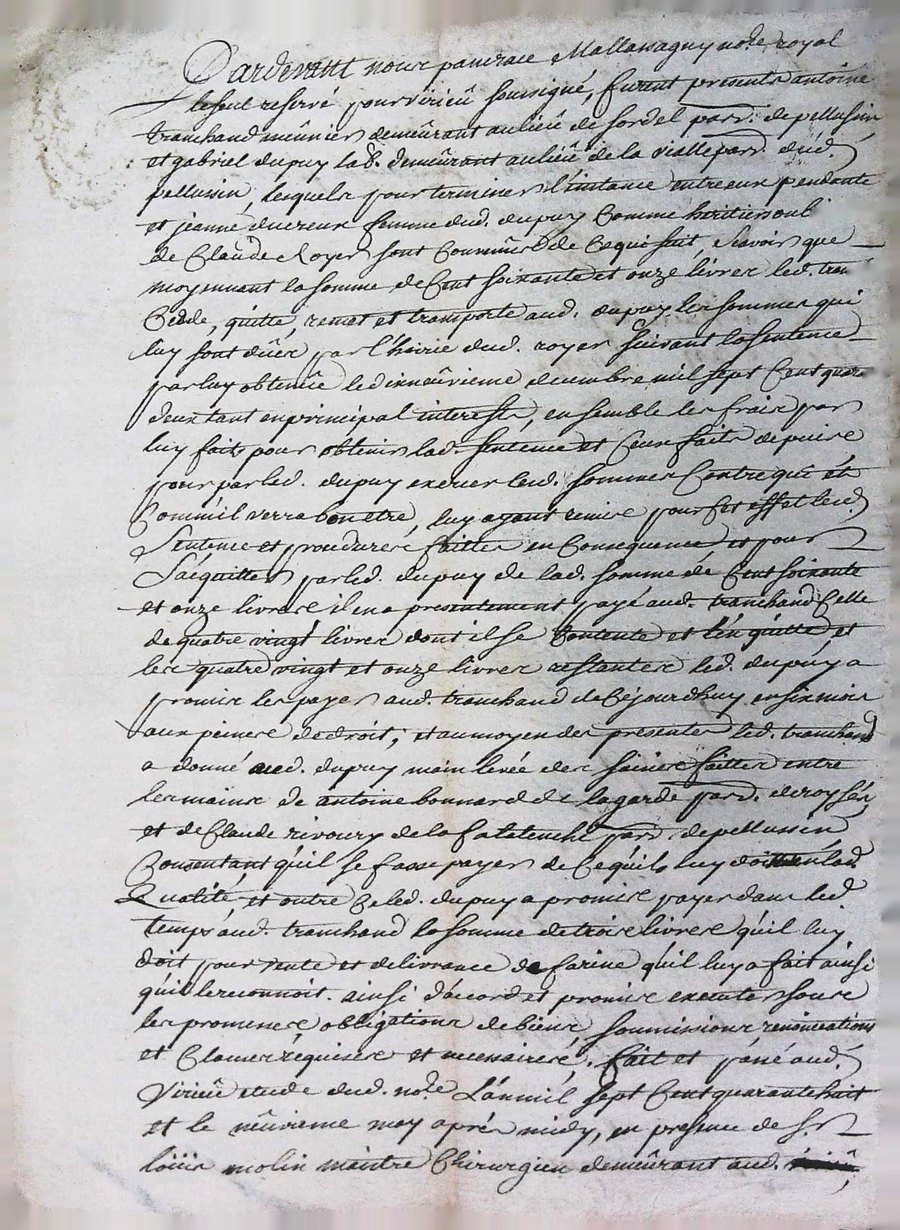 Pardevant nous pancrace Mallassagny no.re royal
le seul reservé pour virieû soussigné, furent presents antoine
tranchand meûnier demeûrant au lieû de sordel parr. de pellussin
et gabriel dupuy lab.r demeûrant au lieû de la vialle parr. dud.
pellussin, lesquels pour terminer l'instance entre eux pendante
et jeanne ducreux femme dud. dupuy comme heritiere
de Claude Royer sont convenûs de ce qui suit, sçavoir que
moyennant la somme de Cent soixante et onze livres led. tran
Cedde, quitte, remet et transporte aud. dupuy les sommes qui
luy sont dûes par l'hoirie dud. royer suivant la sentence
par luy obtenûe le dixneûvieme decembre mil sept Cent quara
deux tant en principal interests, ensemble les frais par
luy faits pour obtenir lad. sentence et Ceux faits depuis
pour par led. dupuy exiger lesd. sommes Contre qui et
Comm'il verra bon etre, luy ayant remis pour Cet effet lesd.
Sentence et procedures faittes en Consequence et pour
S'acquitter par led. dupuy de lad. somme de Cent soixante
et onze livres il en a presentement payé aud. tranchand Celle
de quatre vingt livres dont il se Contente et l'en quitte et
les quatre vingt et onze livres restantes led. dupuy a
promis les payer aud. tranchand de Cejourd'huy en six mois
aux peines de droit, et au moyen des presentes led. tranchand
a donné aud. dupuy main levée des saisies faittes entre
les mains de antoine bonnard de la garde parr. de roysey,
et de Claude rivoury de la parr. de pellussin
Consentant qu'il se fasse payer de Ce qu'ils luy doivent en lad.
Qualité, et outre Ce led. dupuy a promis payer dans led.
temps aud. tranchand la somme de trois livres qu'il luy
doit pour vente et delivrance de farine qu'il luy a fait ainsi
qu'il le reconnoit. ainsi d'acord et promis executer sous
les promesses obligations de biens soumissions renonciations
et Clauses requises et necessaires. fait et passé aud.
Virieû etude dud. no.re L'an mil sept Cent quarante huit
et le neûvieme may après midy, en presence de S.r
loüis molin maitre Chirurgien demeûrant aud.